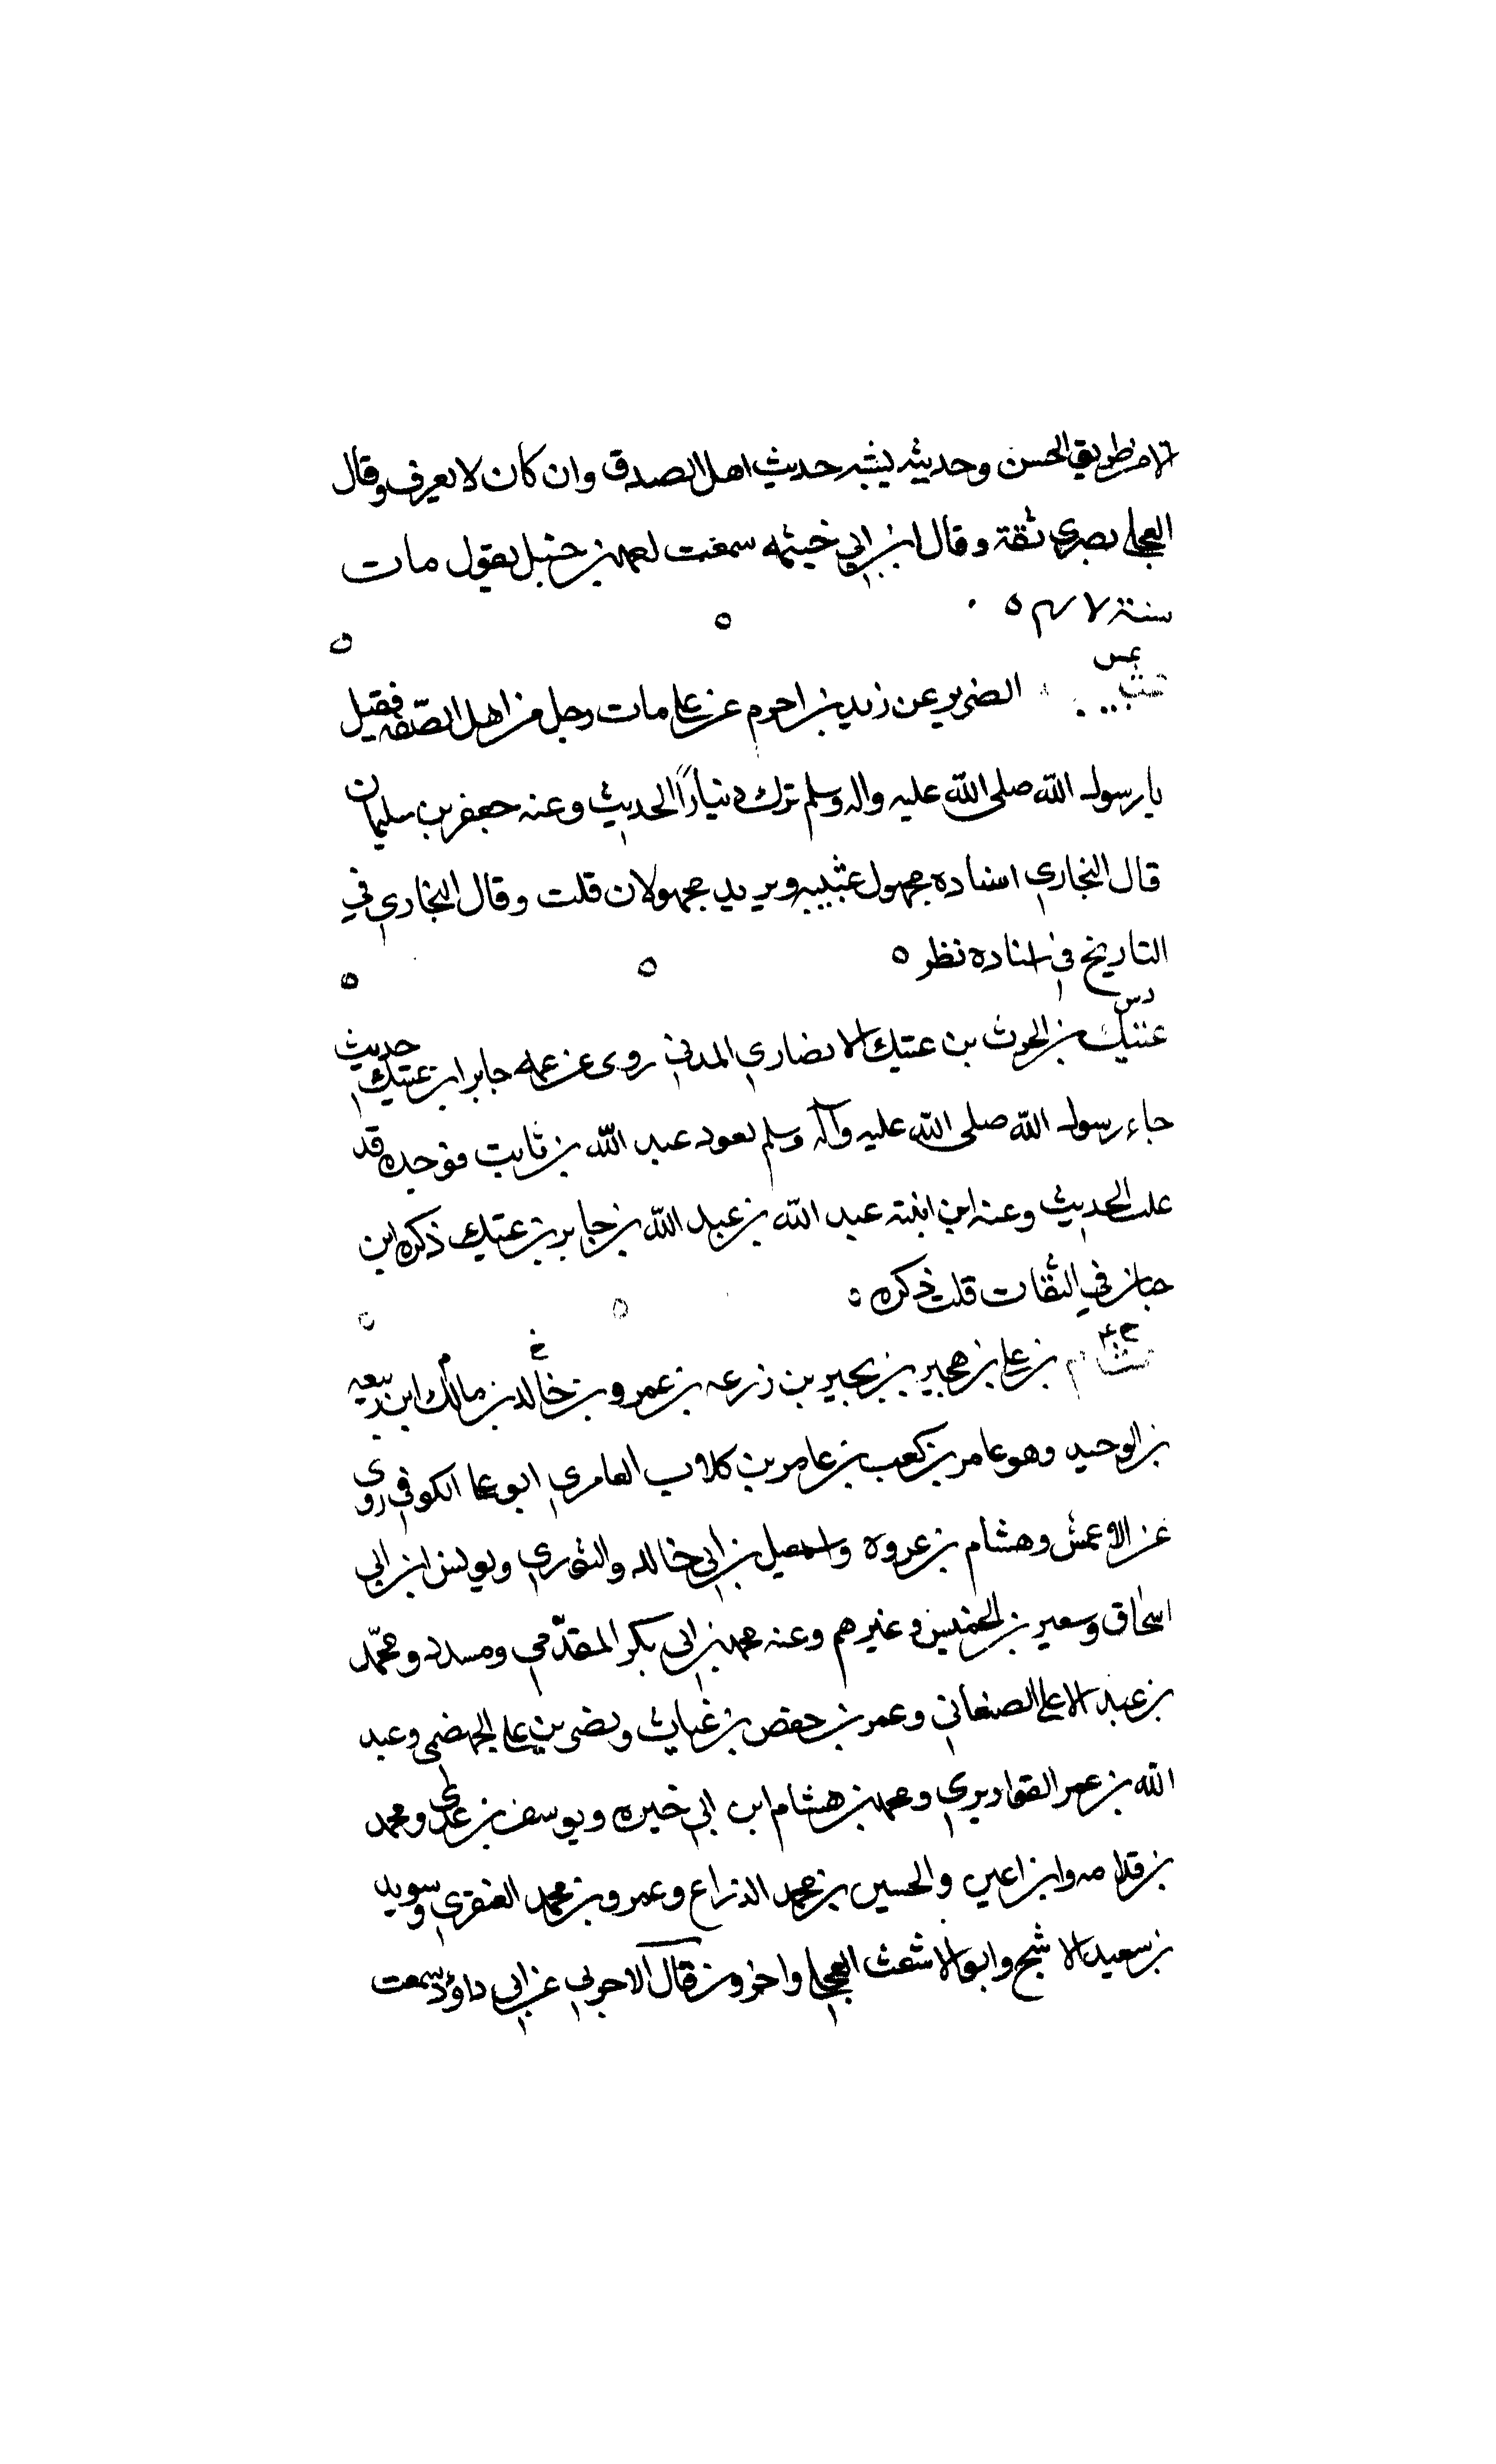 الا من طريق الحسن وحديثه يشبه حديث اهل الصدق وان كان لا يعرف وقال
العجلي بصري ثقة وقال ابن ابي خيثمه سمعت احمد بن حنبل يقول مات
سنة
عس
الضرير عن زيد بن احرم عن علي مات رجل من اهل الصّفه فقيل
يا رسول الله صلى الله عليه واله وسلم ترك دنياراً الحديث وعنه جعفر بن سليمان
قال البخاري اسناده مجهول عتيبه وبريد مجهولان قلت وقال البخاري في
التاريخ في اسناده نظر ٥
دس
عتيك بن الحرث بن عتيك الانصاري المدني روى عن عمه جابر ابن عتيك حديث
جاء رسول الله صلى الله عليه وآله وسلم يعود عبد الله بن ثابت فوجده قد
غلب الحديث وعنه ابن ابنته عبد الله بن عبد الله بن جابر بن عتيك ذكره ابن
حبان في الثقات قلت ذكره ٥
عثام بن علي بن هجير بن بجير بن زرعه بن عمرو بن خالد بن مالك ابن ربيعه
بن الوحيد وهو عامر بن كعب بن عامر بن كلاب العامري ابو علي الكوفي روى
عن الاعمش وهشام بن عروه واسمعيل بن ابي خالد والثوري ويونس ابن ابي
اسحاق وسعير بن الخمس وغيرهم وعنه محمد بن ابي بكر المقدّمي ومسدد ومحمّد
بن عبد الاعلى الصنعاني وعمر بن حفص بن غياث ونصر بن علي الجهضمي وعبد
الله بن عمر القواريري ومحمد بن هشام ابن ابي خيره ويوسف بن عدي ومحمد
بن قدامه وابن اعين والحسين بن محمد الذراع وعمرو بن محمد العنقزي وسويد
بن سعيد الاشج وابو الاشعث العجلي واخرون قال الاجري عن ابي داؤد سمعت